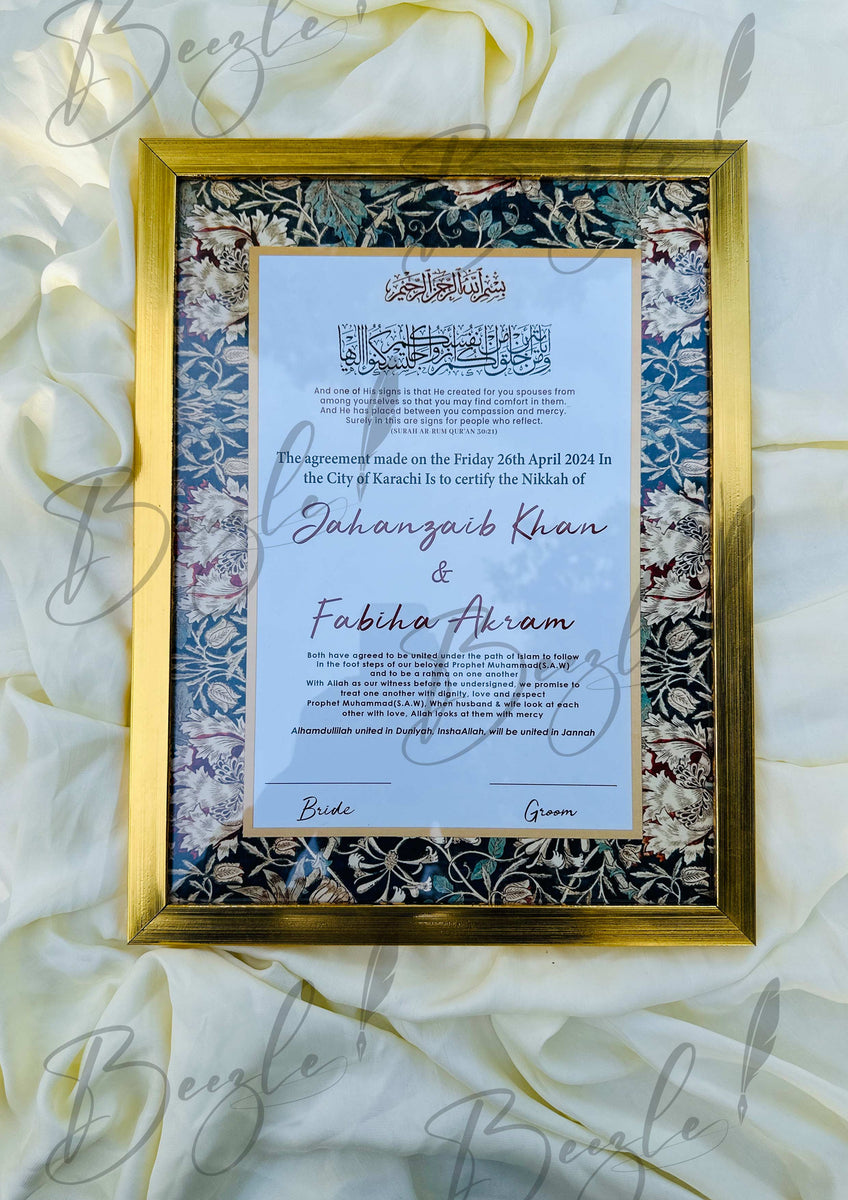 Beezle!
Beezle!
بسم الله الرحمن الرحيم
And one of His signs is that He created for you spouses from
among yourselves so that you may find comfort in them.
And He has placed between you compassion and mercy.
Surely in this are signs for people who reflect.
(SURAH AR-RUM QUR'AN 30:21)
The agreement made on the Friday 26th April 2024 In
the City of Karachi Is to certify the Nikkah of
Jahanzaib Khan
&
Fabiha Akram
Both have agreed to be united under the path of Islam to follow
in the foot steps of our beloved Prophet Muhammad(S.A.W)
and to be a rahma on one another
With Allah as our witness before the undersigned, we promise to
treat one another with dignity, love and respect
Prophet Muhammad(S.A.W), When husband & wife look at each
other with love, Allah looks at them with mercy
Alhamdullilah united in Duniyah, InshaAllah, will be united in Jannah
Bride Groom
Beezle!
Beezle!
Beezle!
Beezle!